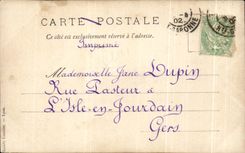 CARTE POSTALE
Ce côté est exclusivement réservé à l'adresse.
Imprimé
02
Mademoiselle Jane Dupin
Rue Pasteur à
L'Isle-en-Jourdain
Gers.